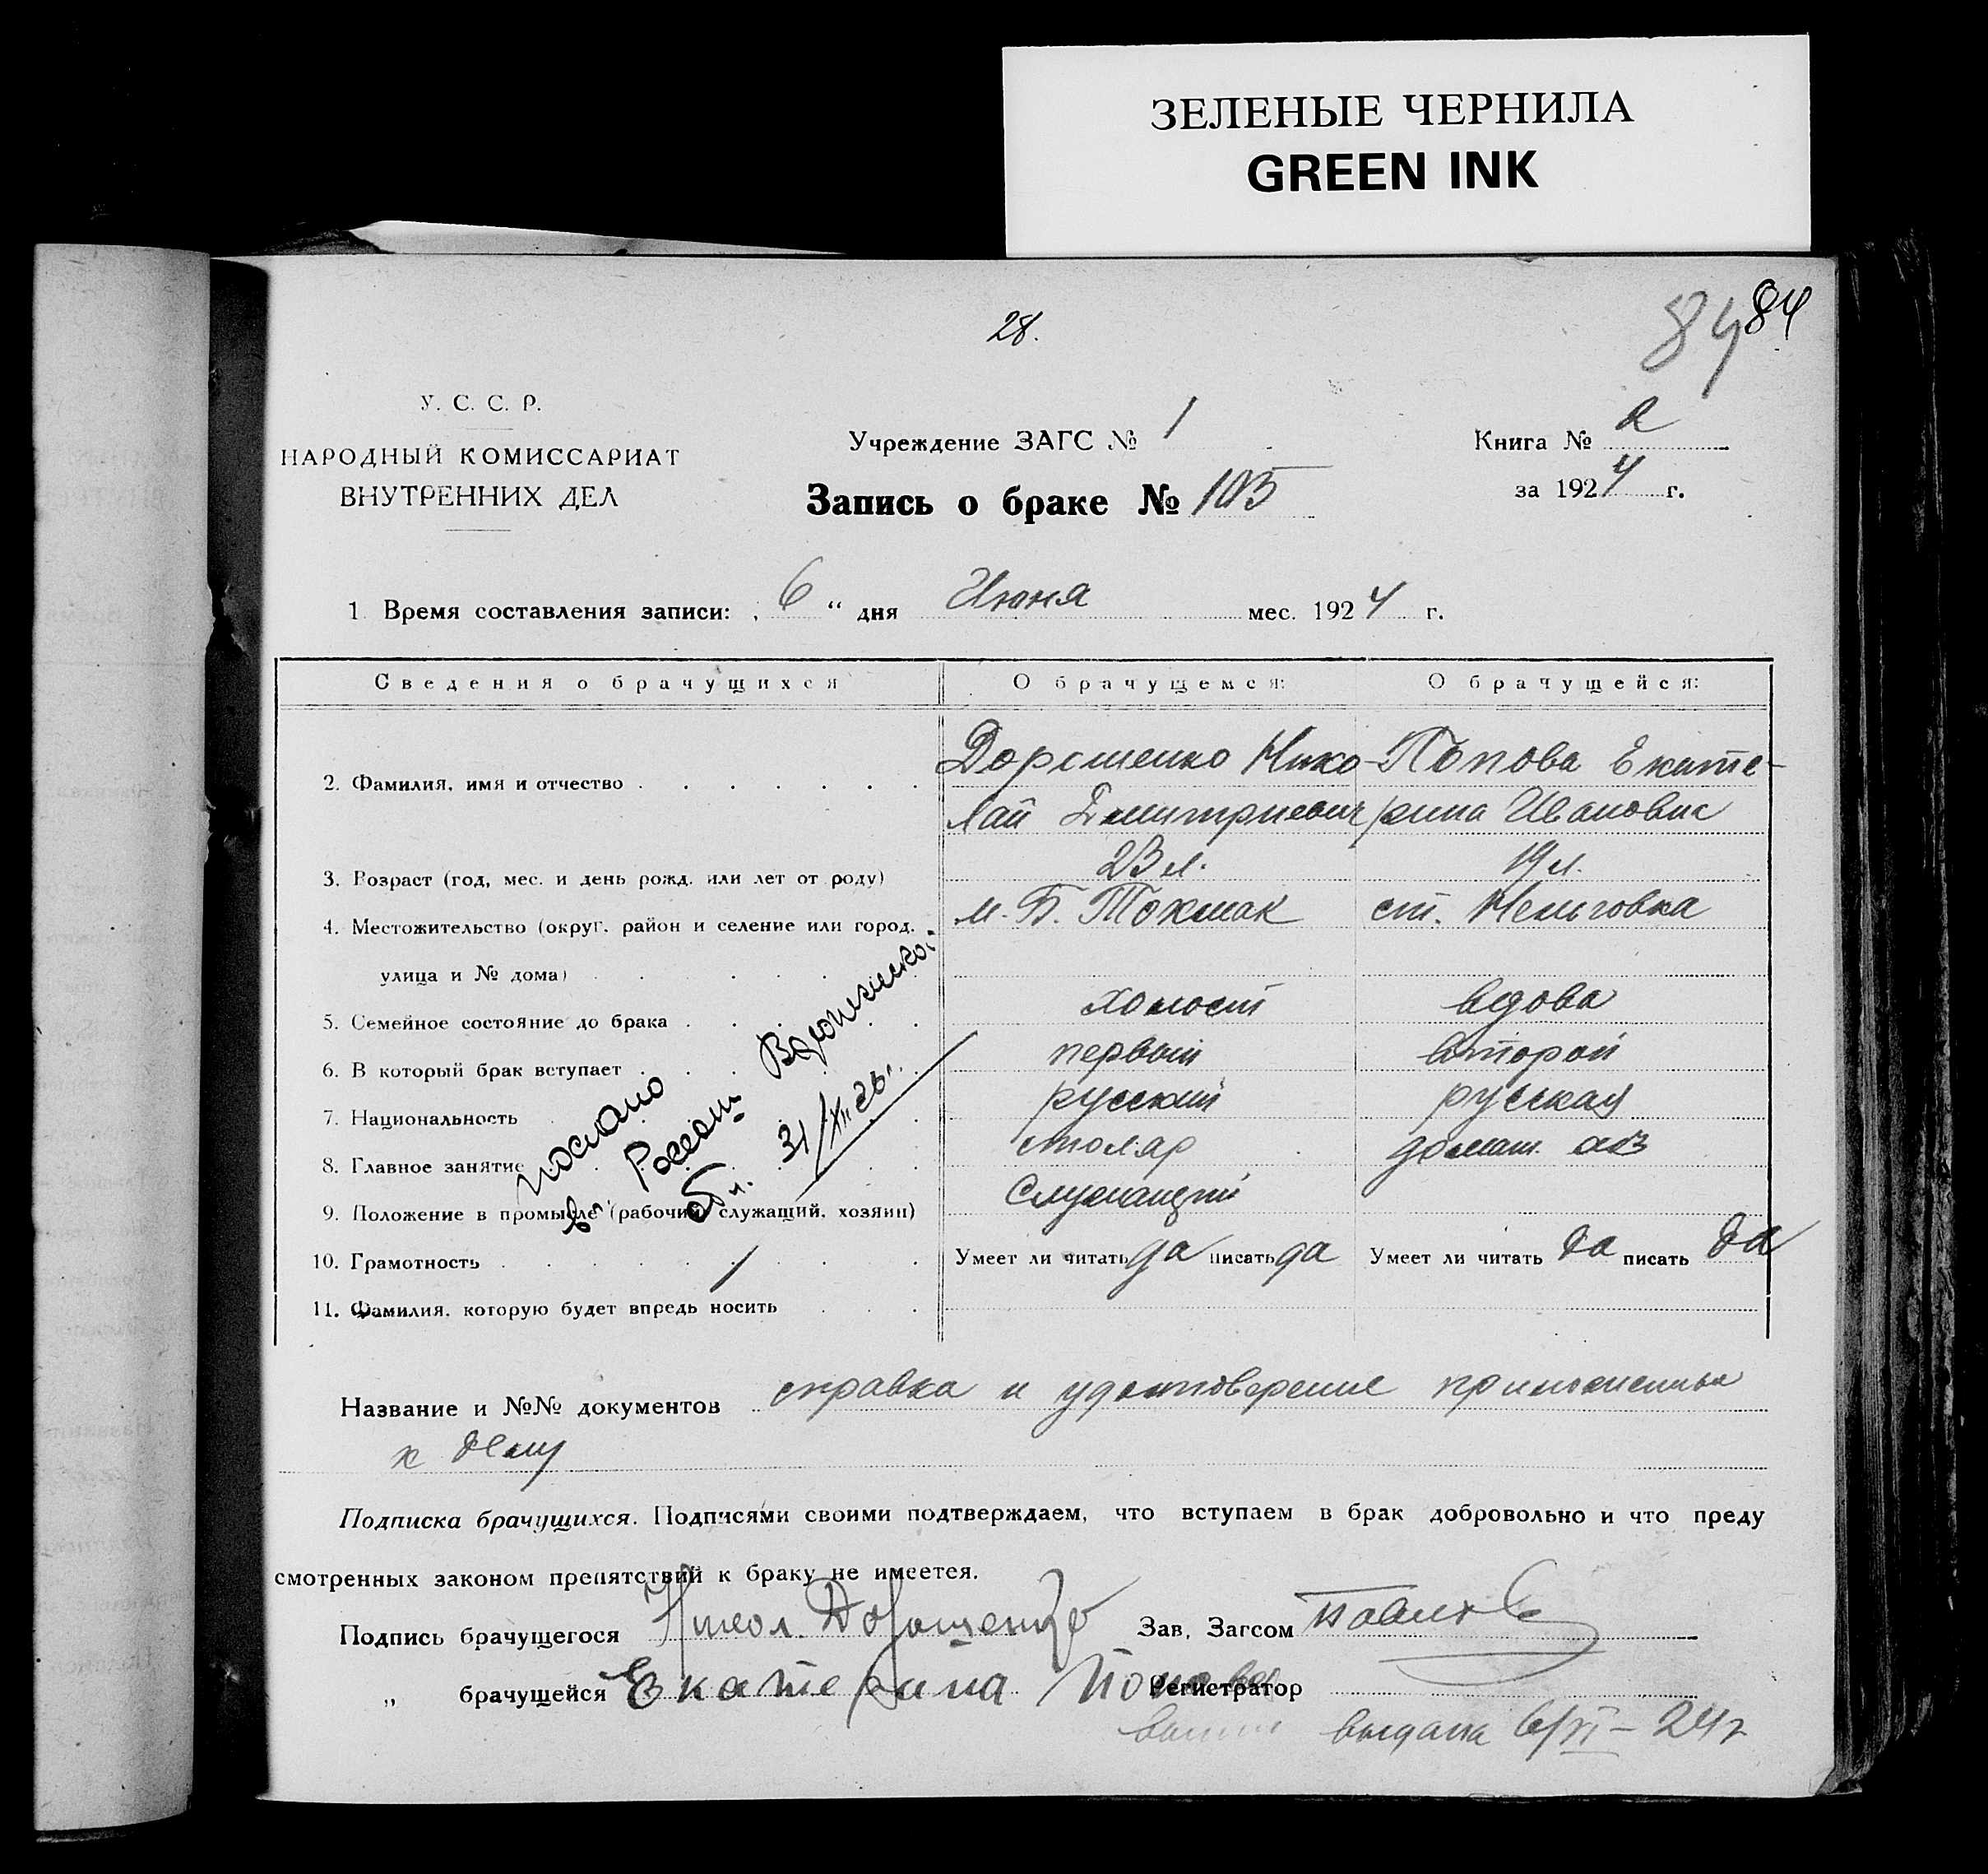 ЗЕЛЕНЫЕ ЧЕРНИЛА
GREEN INK
84 84
28.
У. С. С. Р.
НАРОДНЫЙ КОМИССАРИАТ
ВНУТРЕННИХ ДЕЛ
Учреждение ЗАГС № 1
Запись о браке № 105
Книга №
за 1924 г.
1. Время составления записи: „ 6 “ дня Июня мес. 1924 г.
Сведения о брачущихся О брачущемся: О брачущейся:
2. Фамилия, имя и отчество Дорошенко Нико- Попова Екате-
лай Дмитриевич рина Ивановна
3. Возраст (год, мес. и день рожд. или лет от роду) 23 л. 19 л.
4. Местожительство (округ, район и селение или город, м. Б. Токмак ст. Нельговка
улица и № дома)
5. Семейное состояние до брака холост вдова
6. В который брак вступает первый второй
7. Национальность русский русская
8. Главное занятие столяр домаш. хоз
9. Положение в промысле (рабочий, служащий, хозяин) Служащий
10. Грамотность Умеет ли читать да писать да Умеет ли читать да писать да
11. Фамилия, которую будет впредь носить
послано
в г. Россош Воронежской
обл. 31/XII
Название и №№ документов справка и удостоверение приложены
к делу
Подписка брачущихся. Подписями своими подтверждаем, что вступаем в брак добровольно и что преду
смотренных законом препятствий к браку не имеется.
Подпись брачущегося Никол. Дорошенко Зав. Загсом
„ брачущейся Екатерина Попова Регистратор
выдана 6/VI – 24 г